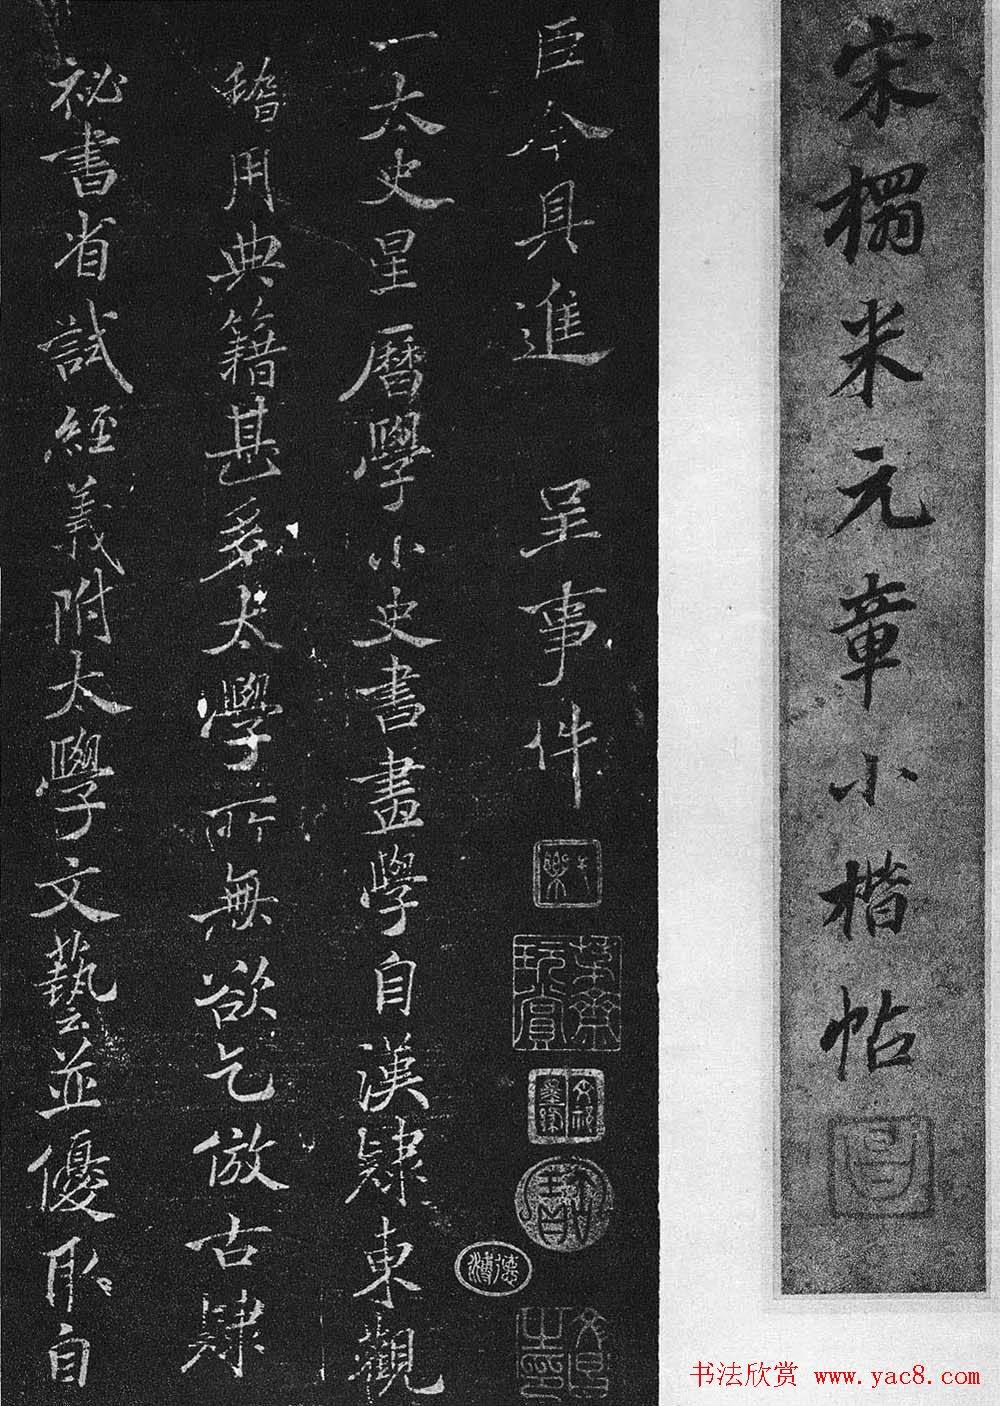 宋榻米元章小楷帖
臣今具進　呈事件
一太史星曆學小史書畫學自漢隸東觀
稽用典籍甚多太學所無欲乞倣古隸
祕書省試經義附太學文藝並優取自
書法欣赏 www.yac8.com